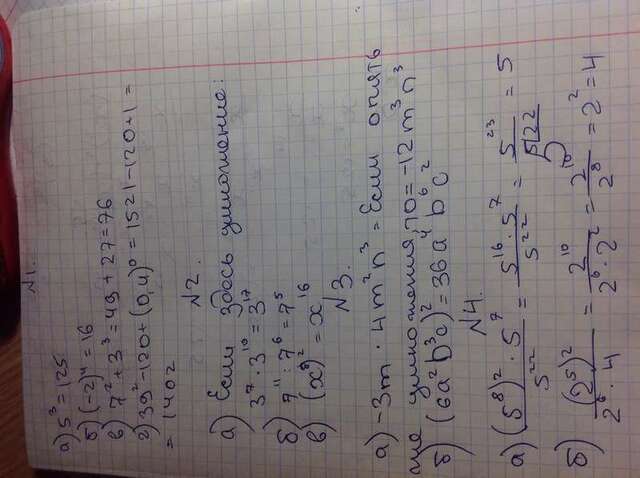 №1.
а) 5³ = 125
б) (-2)⁴ = 16
в) 7² + 3³ = 49 + 27 = 76
г) 39² - 120 + (0,4)⁰ = 1521 - 120 + 1 =
= 1402
№2.
а) Если здесь умножение:
3⁷ · 3¹⁰ = 3¹⁷
б) 7¹¹ : 7⁶ = 7⁵
в) (x⁸)² = x¹⁶
№3.
а) -3m · 4m²n³ = Если опять
же умножения, то = -12m³n³
б) (6a²b³c)² = 36a⁴b⁶c²
№4.
а) (5⁸)² · 5⁷ / 5²² = 5¹⁶ · 5⁷ / 5²² = 5²³ / 5²² = 5
б) (2⁵)² / 2⁶ · 4 = 2¹⁰ / 2⁶ · 2² = 2¹⁰ / 2⁸ = 2² = 4